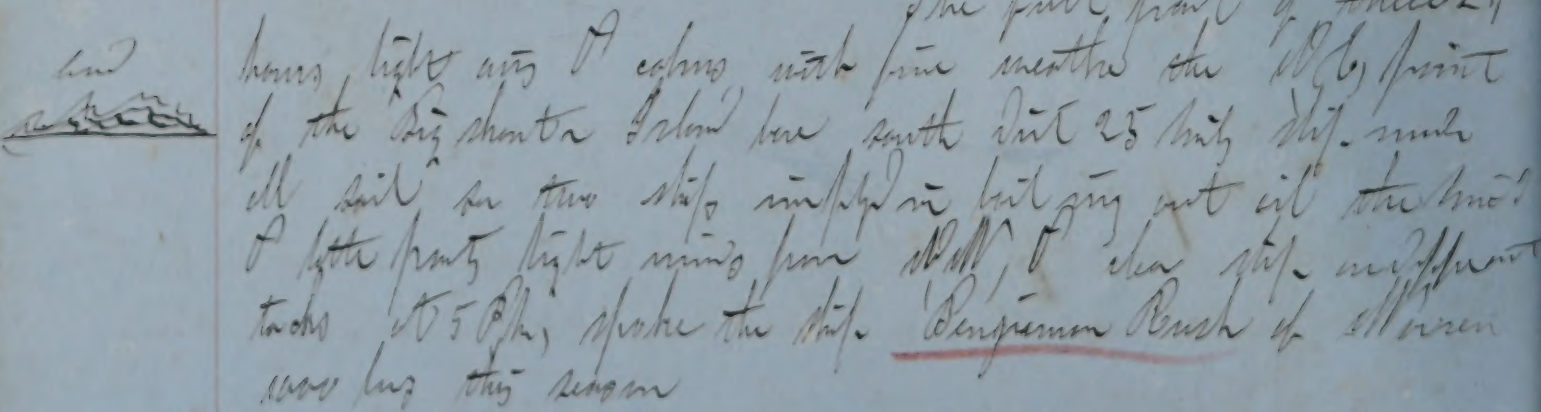 The first part of these 24
land
hours, light airs & calms, with fine weather the N.E, point
of the Big shantar Island bore south Dist 25 mils ship under
all sail saw two ships imployd in boiling out oil the mid
& latter parts light winds from NW, & clear ship on different
tacks At 5 P.M, spoke the ship Bengieman Rush of Warren
this season